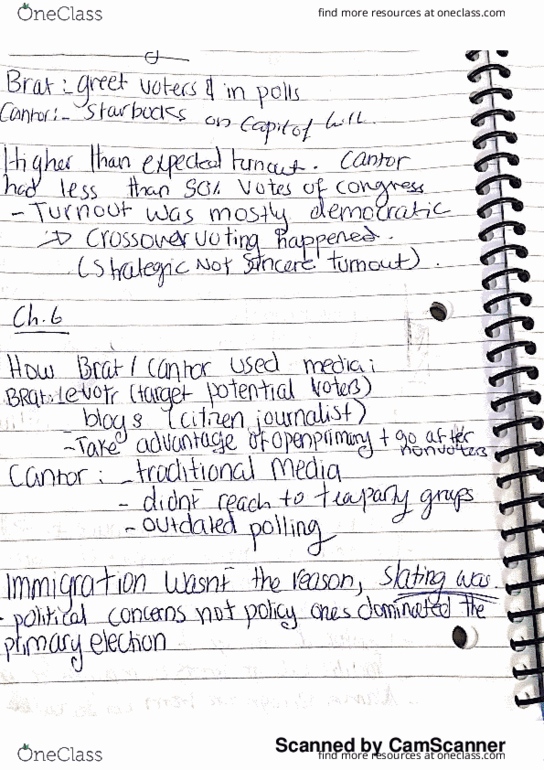 OneClass
find more resources at oneclass.com
Brat: greet voters & in polls
Cantor:- Starbucks on Capitol hill.
Higher than expected turnout. Cantor
had less than 50% votes of congress
- Turnout was mostly democratic
=> Crossover voting happened.
(Strategic Not Sincere turnout).
Ch.6
How Brat / Cantor used media:
BRat: (target potential voters)
blogs (citizen journalist)
- Take advantage of openprimary + go after
nonvoters
Cantor: - traditional media
- didnt reach to teaparty grups
- outdated polling
Immigration wasnt the reason, slating was.
- political concerns not policy ones dominated the
primary election
Scanned by CamScanner
OneClass
find more resources at oneclass.com